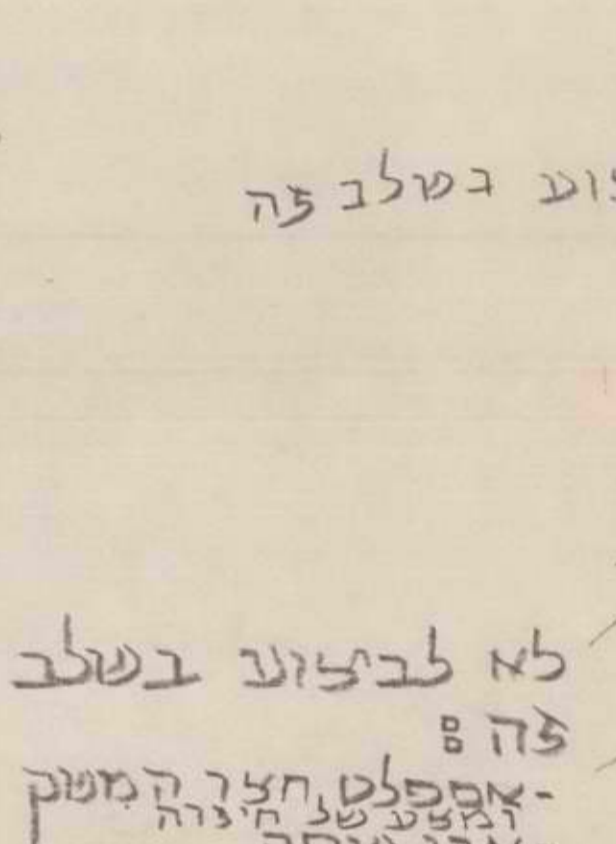 בשלב זה
לא לביצוע בשלב
זה :
-אספלט חצר המשק
ומצע של חיצרה